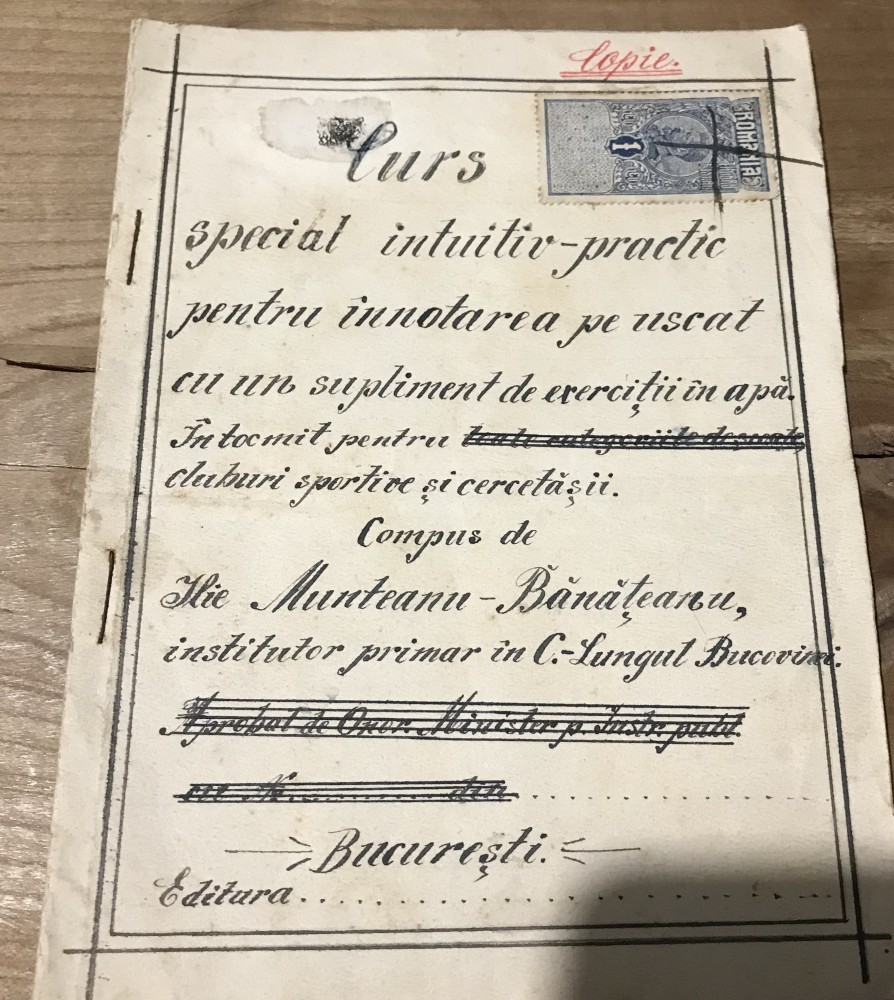 Copie.
ROMANIA
1
Curs
special intuitiv-practic
pentru înnotarea pe uscat
cu un supliment de exerciții în apă.
Întocmit pentru toate categoriile de școale,
cluburi sportive și cercetășii.
Compus de
Ilie Munteanu-Bănățeanu,
institutor primar în C.-Lungul Bucovinei.
Aprobat de Onor. Minister p. Instr. publ.
cu No. ........ din ........
București.
Editura ........